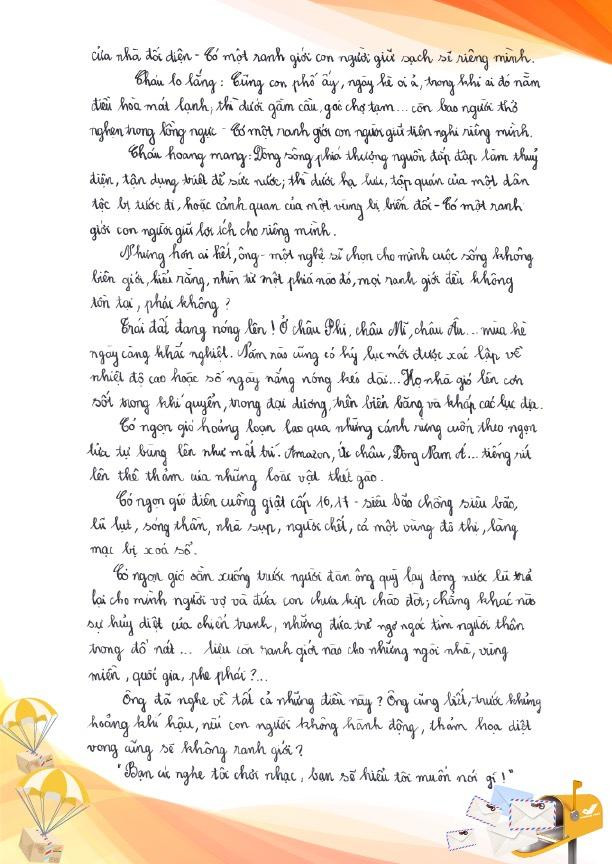 cửa nhà đối diện - Có một ranh giới con người giữ sạch sẽ riêng mình.
Cháu lo lắng: Cũng con phố ấy, ngày hè oi ả, trong khi ai đó nằm
điều hòa mát lạnh; thì dưới gầm cầu, góc chợ tạm... còn bao người thở
nghẹn trong lồng ngực - Có một ranh giới con người giữ tiện nghi riêng mình.
Cháu hoang mang: Dòng sông phía thượng nguồn đắp đập làm thuỷ
điện, tận dụng triệt để sức nước; thì dưới hạ lưu, tập quán của một dân
tộc bị tước đi, hoặc cảnh quan của một vùng bị biến đổi - Có một ranh
giới con người giữ lợi ích cho riêng mình.
Nhưng hơn ai hết, ông - một nghệ sĩ chọn cho mình cuộc sống không
biên giới, hiểu rằng, nhìn từ một phía nào đó, mọi ranh giới đều không
tồn tại, phải không?
Trái đất đang nóng lên! Ở châu Phi, châu Mĩ, châu Âu... mùa hè
ngày càng khắc nghiệt. Năm nào cũng có kỷ lục mới được xác lập về
nhiệt độ cao hoặc số ngày nắng nóng kéo dài... Họ nhà gió lên cơn
sốt trong khí quyển, trong đại dương, trên biển băng và khắp các lục địa.
Có ngọn gió hoảng loạn lao qua những cánh rừng cuốn theo ngọn
lửa tự bùng lên như mất trí. Amazon, Úc châu, Đông Nam Á... tiếng rít
lên thê thảm của những loài vật thét gào.
Có ngọn gió điên cuồng giật cấp 16, 17 - siêu bão chồng siêu bão,
lũ lụt, sóng thần, nhà sụp, người chết, cả một vùng đô thị, làng
mạc bị xoá sổ.
Có ngọn gió sằn xuống trước người đàn ông quỳ lạy dòng nước lũ trả
lại cho mình người vợ và đứa con chưa kịp chào đời; chẳng khác nào
sự hủy diệt của chiến tranh, những đứa trẻ ngơ ngác tìm người thân
trong đổ nát... liệu còn ranh giới nào cho những ngôi nhà, vùng
miền, quốc gia, phe phái?...
Ông đã nghe về tất cả những điều này? Ông cũng biết, trước khủng
hoảng khí hậu, nếu con người không hành động, thảm hoạ diệt
vong cũng sẽ không ranh giới?
"Bạn cứ nghe tôi chơi nhạc, bạn sẽ hiểu tôi muốn nói gì!"